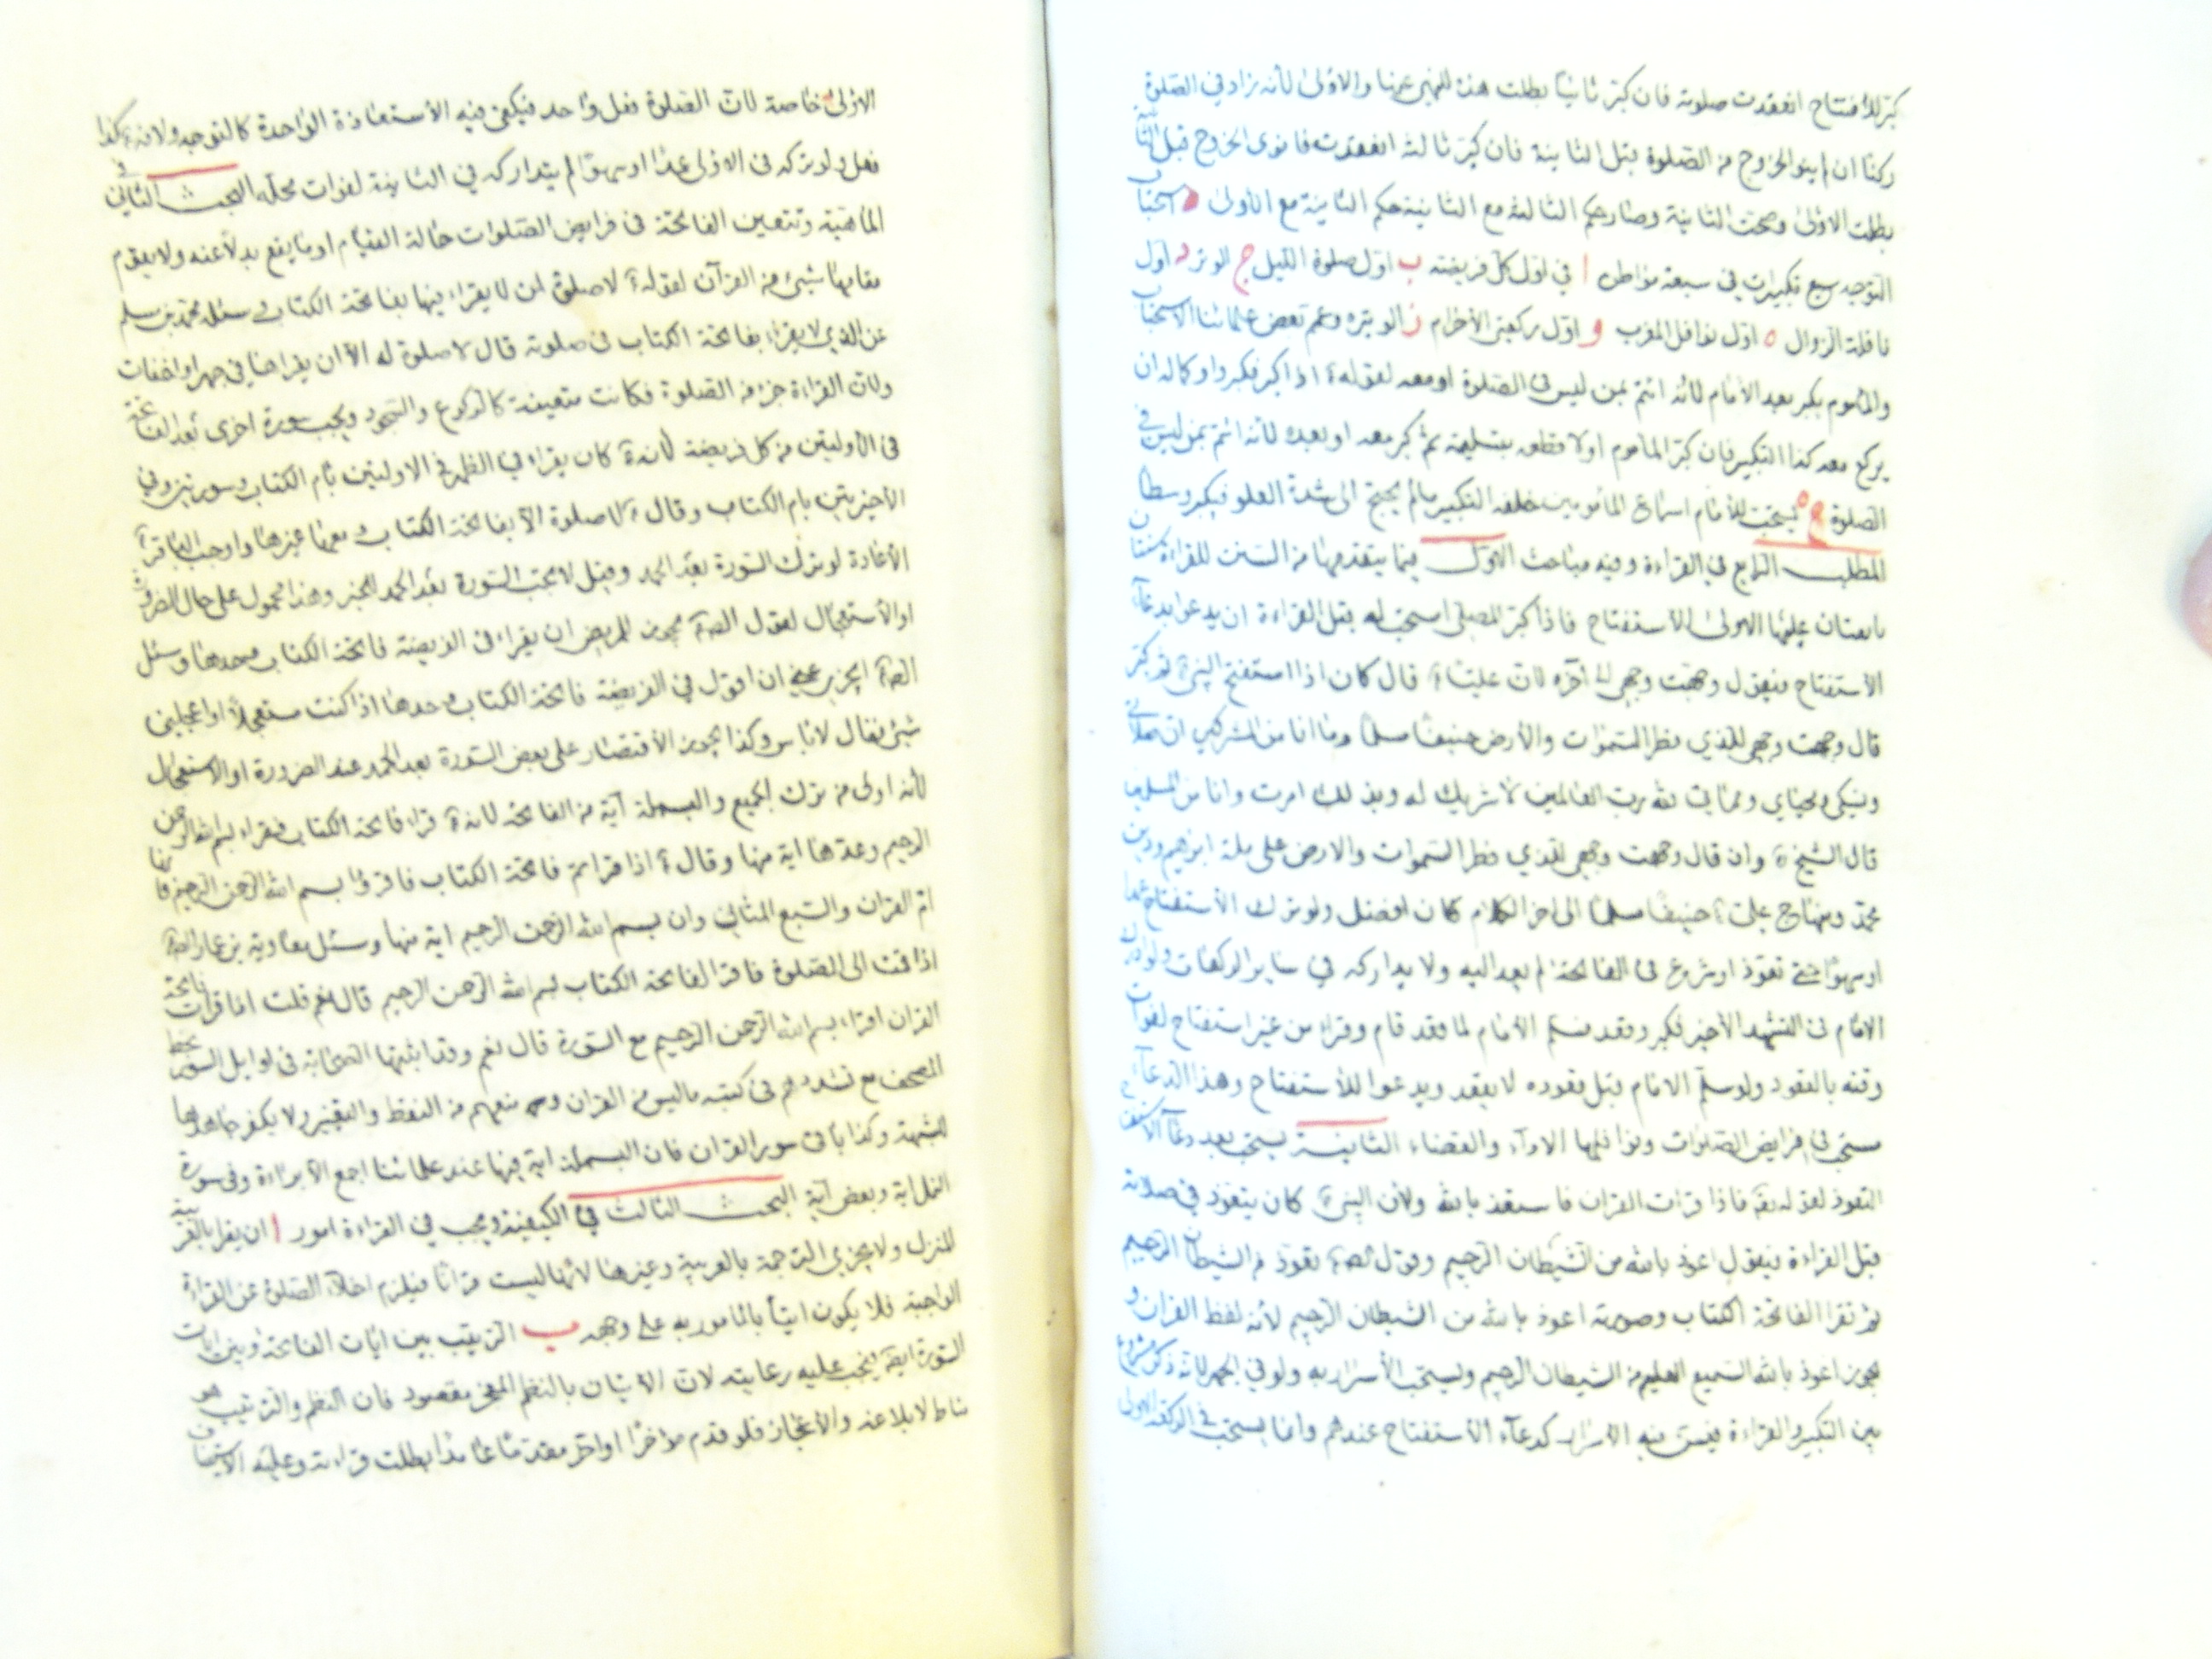 كبّر للأفتتاح انعقدت صلوته فان كبّر ثانيًا بطلت هذه للنهى عنها والاولى لأنه زاد في الصّلوة
ركنًا ان لم ينو الخروج من الصّلوة قبل الثانية فان كبّر ثالثة انعقدت فان نوى الخروج قبل الثانية
بطلت الاولى وصحت الثانية وصار حكم الثالثة مع الثانية حكم الثانية مع الأولى استحباب
التوجيه بسبع تكبيرات في سبعة مواطن ا في اول كل فريضة ب اول صلوة الليل ج الوتر د اول
نافلة الزوال ه اول نوافل المغرب و اوّل ركعتى الأحرام ز الوتيرة وعمم بعض علمائنا الاستحباب
والمأموم يكبر بعد الأمام لأنه ائتم بمن ليس في الصّلوة او معه لقوله اذا كبر فكبروا وكما له ان
يركع معه كذا التكبير فان كبّر المأموم اولا قطعه بتسليمة ثم كبر معه او بعده لأنه ائتم بمن ليس في
الصّلوة ح يستحب للأمام اسماع المأمومين خلفه التكبير مالم يحتج الى شدة العلو فيكبر وسطًا
المطلب الرابع في القراءة وفيه مباحث الاول فيما يتقدمها من السنن للقراءة سنتان
سابقتان عليها الاولى الاستفتاح فاذا كبّر المصلى استحب له قبل القراءة ان يدعو بدعاء
الأستفتاح فيقول وجهت وجهي الى آخره لان عليًّا قال كان اذا استفتح النبى ثم كبّر
قال وجهت وجهي للذي فطر السّموات والأرض حنيفًا مسلمًا وما انا من المشركين ان صلاتي
ونسكي ومحياي ومماتي لله رب العالمين لا شريك له وبذلك امرت وانا من المسلمين
قال الشيخ وان قال وجهت وجهي للذي فطر السّموات والارض على ملة ابرهيم ودين
محمّد ومنهاج على حنيفًا مسلمًا الى اخر الكلام كان افضل ولو ترك الأستفتاح عمدا
او سهوًا حتى تعوّذ او شرع فى الفاتحة لم يعد اليه ولا يداركه في ساير الركعات ولو ادرك
الامام فى التشهد الأخير فكبر وقعد فسلم الأمام لما قعد قام وقراء من غير استفتاح لفوات
وقته بالقعود ولو سلّم الامام قبل قعوده لا يقعد ويدعوا للأستفتاح وهذا الدعاء
مستحب في فرايض الصّلوات ونوافلها الاداء والقضاء الثانية يستحب بعد دعاء الاستفتاح
التعوذ لقوله تعه فاذا قرأت القران فاستعذ بالله ولأن النبى كان يتعوّذ في صلاته
قبل القراءة فيقول اعوذ بالله من الشيطان الرجيم وقول الصه تعوّذ من الشيطان الرجيم
ثم تقرا الفاتحة الكتاب وصورته اعوذ بالله من الشيطان الرجيم لأنه لفظ القران و
يجوز اعوذ بالله السّميع العليم من الشيطان الرجيم ويستحب الأسرار به ولو في الجهر لانه ذكر مشروع
بين التكبير والقراءة فيسن فيه الاسرار كدعاء الأستفتاح عندهم وانما يستحب في الركعة الاولى
الاولى خاصة لان الصّلوة فعل واحد فيكفى فيه الأستعاذة الواحدة كالتوجيه ولانه كذا
فعل ولو تركه فى الاولى عمدًا او سهوًا لم يتداركه في الثانية لفوات محله البحث الثاني في
الماهية وتتعين الفاتحة فى فرايض الصّلوات حالة القيام او ما يقع بدلًا عنه ولا يقوم
مقامها شيئ من القرآن لقوله لا صلوة لمن لا يقراء فيها بفاتحة الكتاب وسئله محمّد بن مسلم
عن الذي لا يقراء بفاتحة الكتاب فى صلوته قال لا صلوة له الّا ان يقراء بها في جهر او اخفات
ولان القراءة جزء من الصّلوة فكانت متعينة كالركوع والسّجود ويجب سورة اخرى بعد الفاتحة
فى الأوليتين من كل فريضة لأنه كان يقراء في الظهر في الاوليتين بأم الكتاب وسورتين وفي
الأخيرتين بأم الكتاب وقال لا صلوة الّا بفاتحة الكتاب ومعها غيرها واوجب الباقر
الأعادة لو ترك السّورة بعد الحمد وقيل لا يجب السّورة بعد الحمد لخبر وهذا محمول على حال الضرورة
او الأستعجال لقول الصه يجوز للمريض ان يقراء فى الفريضة فاتحة الكتاب وحدها وسئل
الصه ايجزي عني ان اقول في الفريضة فاتحة الكتاب وحدها اذا كنت مستعجلًا او اعجلني
شيئ فقال لا بأس وكذا يجوز الأقتصار على بعض السّورة بعد الحمد عند الضرورة او الاستعجال
لأنه اولى من ترك الجميع والبسملة آية من الفاتحة لانه قراء فاتحة الكتاب فقراء بسم الله الرحمن
الرحيم وعدها اية منها وقال اذا قراتم فاتحة الكتاب فاقرؤا بسم الله الرّحمن الرّحيم فانها
ام القران والسّبع المثاني وان بسم الله الرّحمن الرّحيم اية منها وسئل معاوية بن عمار الصه
اذا قمت الى الصّلوة فاقرا لفاتحة الكتاب بسم الله الرّحمن الرّحيم قال نعم قلت اذا قرأت فاتحة
القران اقراء بسم الله الرّحمن الرّحيم مع السّورة قال نعم وقد اثبتها الصّحابة فى اوايل السّور بخط
المصحف مع تشددهم فى كتبه ما ليس من القران ومنعهم من النقط والتغيير ولا يكفر جاحدها
للشبهة وكذا باقى سور القران فان البسملة اية فيها عند علمائنا اجمع الا براءة وفى سورة
النمل اية وبعض آية البحث الثالث في الكيفية ويجب في القراءة امور ا ان يقرا بالعربية
المنزل ولا يجزي الترجمة بالعربية وغيرها لأنها ليست قرانًا فيلزم اخلاء الصّلوة عن القراءة
الواجبة فلا يكون اتيًا بالمأمور به على وجهه ب الترتيب بين ايات الفاتحة وبين ايات
السّورة ايضه يجب عليه رعايته لان الاتيان بالنظم المعجز مقصود فان النظم والترتيب هو
مناط البلاغة والأعجاز فلو قدم مؤخرًا او اخر مقدمًا عامدًا بطلت قراءته وعليه الاستيناف